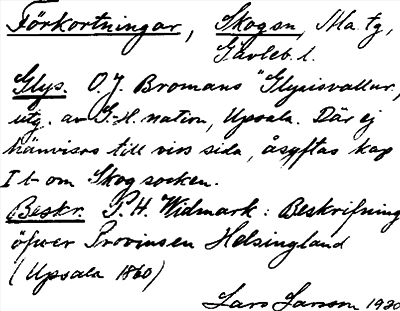 Förkortningar, Skogsn, Ma. tg,
Gävleb. l.
Glys. O. J. Bromans "Glysisvallur",
utg. av G.-H. nation, Upsala. Där ej
hänvisas till viss sida, åsyftas kap
I b om Skog socken.
Beskr. P. H. Widmark: Beskrifning
öfwer Provinsen Helsingland
(Upsala 1860)
Lars Larsson 1920